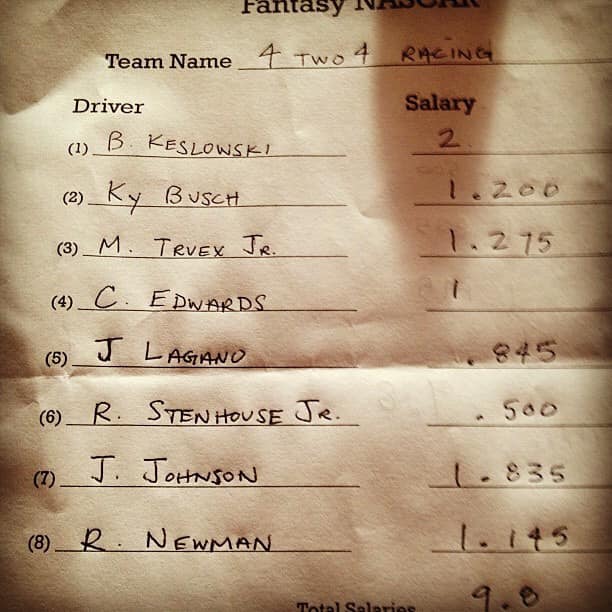 Fantasy NASCAR
Team Name 4 TWO 4 RACING
Driver Salary
(1) B. KESLOWSKI 2
(2) Ky BUSCH 1.200
(3) M. TRUEX JR. 1.275
(4) C. EDWARDS 1
(5) J LAGANO .845
(6) R. STENHOUSE JR. .500
(7) J. JOHNSON 1.835
(8) R. NEWMAN 1.145
Total Salaries 9.8